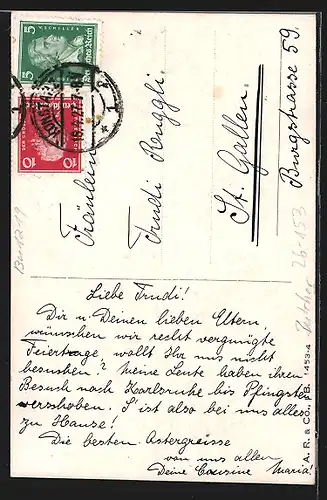 Fräulein
Trudi Ronggli.
St. Gallen.
Burgstrasse 59.
Liebe Trudi!
Dir u. Deinen lieben Eltern,
wünschen wir recht vergnügte
Feiertage, wollt Ihr uns nicht
besuchen? Meine Leute haben ihren
Besuch nach Karlsruhe bis Pfingsten
verschoben. S'ist also bei uns alles
zu Hause!
Die besten Ostergrüsse
von uns allen
Deine Cousine Maria!
A. R. & CO. i. B. 1453-4
5
F.v.SCHILLER
Deutsches Reich
5
10
10
26-153